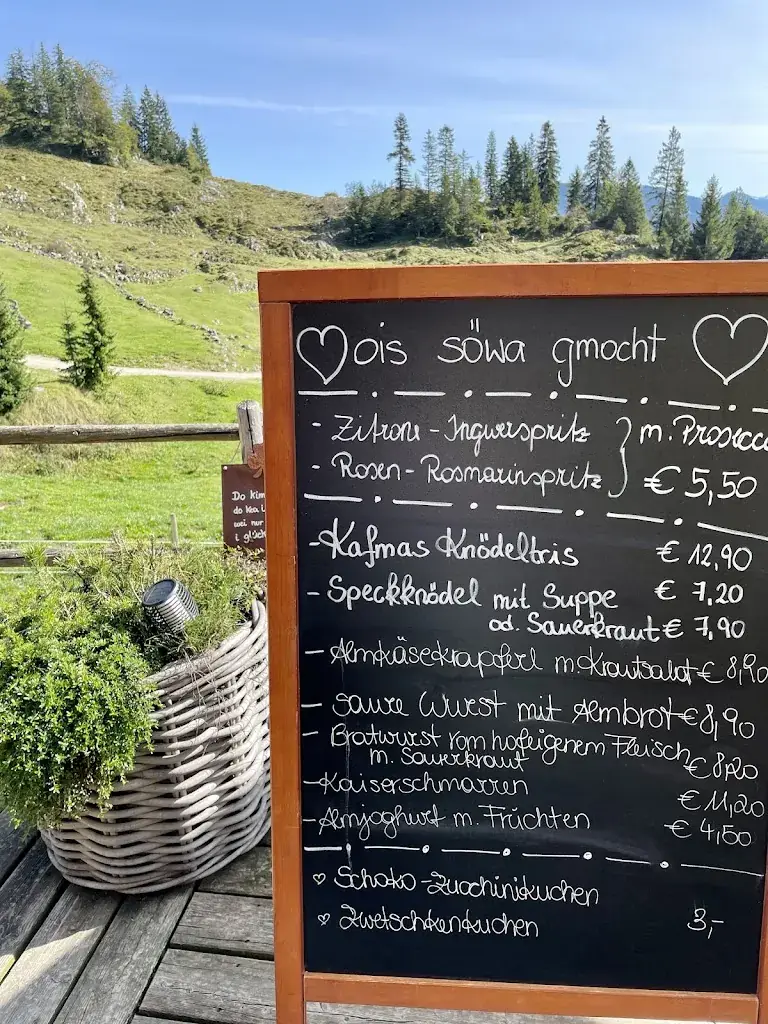 ois söwa gmocht
- Zitrone-Ingwerspritz } m. Prosecco
- Rosen-Rosmarinspritz € 5,50
Do kim
do kea i
wei nur
i glück
- Kafmas Knödeltris € 12,90
- Speckknödel mit Suppe € 7,20
od. Sauerkraut € 7,90
- Almkäsekrapferl m. Krautsalat € 8,90
- saure Wurst mit Almbrot € 8,90
- Bratwurst vom hofeigenem Fleisch
m. Sauerkraut € 8,20
- Kaiserschmarren € 11,20
- Almjoghurt m. Früchten € 4,50
♡ Schoko-Zucchinikuchen
♡ Zwetschkenkuchen 3,-